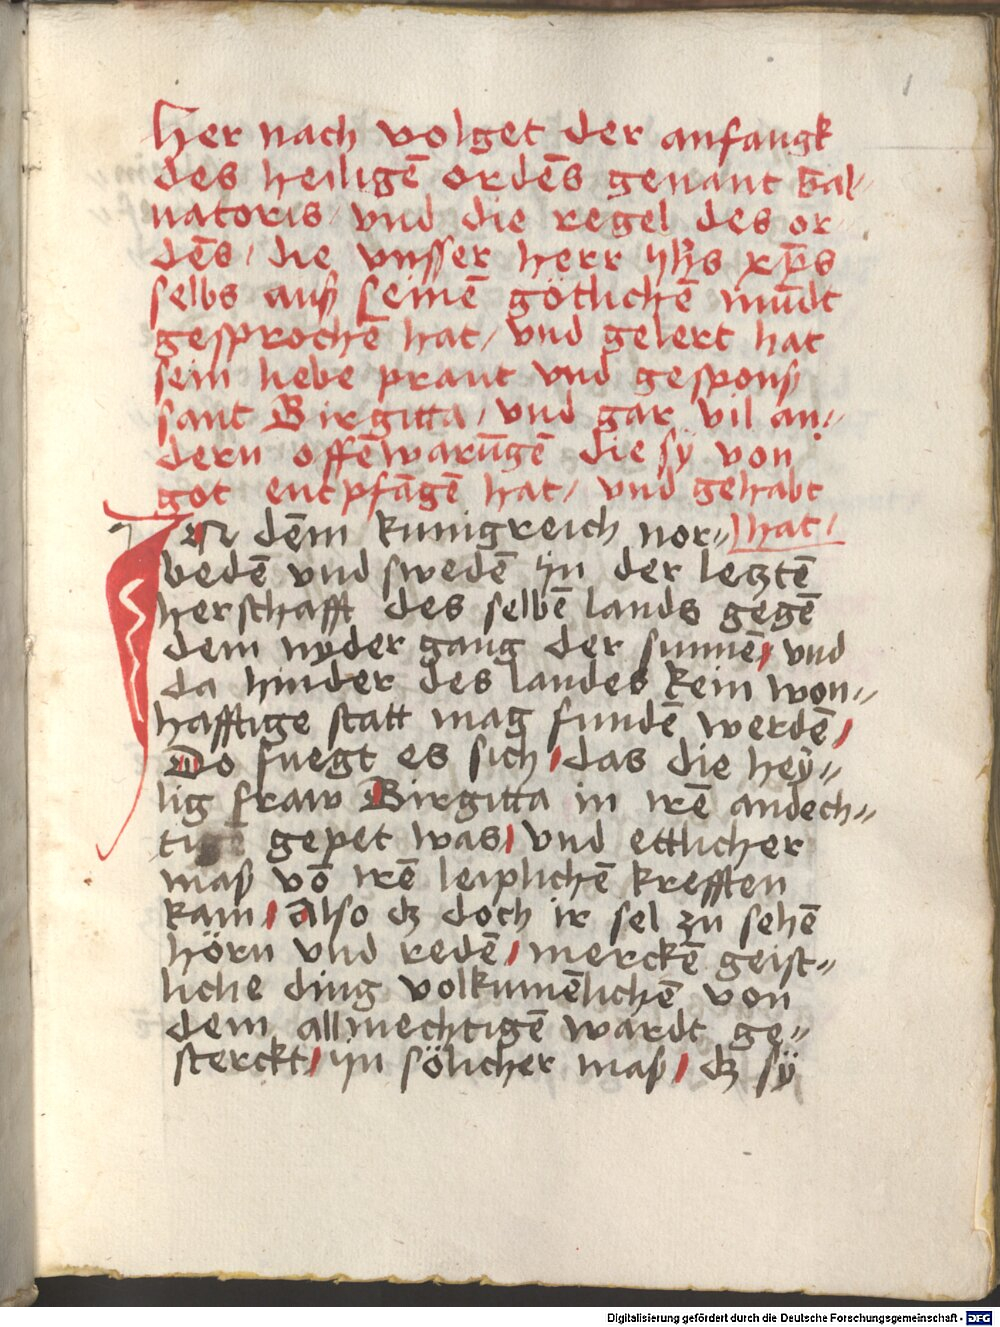 1
Her nach volget der anfangk
des heiligē ordēs genant Sal〃
uatoris / vnd die regel des or
dēs / die vnsser herr yh̄s xp̄s
selbs auß seinē götlichē mūdt
gesprochē hat / vnd gelert hat
sein liebe praut vnd gespons
sant Birgitta / vnd gar vil an〃
dern offēwarūgē die sÿ von
got entpfāgē hat / vnd gehabt
hat /
IN dēm kunigreich nor〃
vedē vnd swedē yn der letztē
herschafft des selbē lands gegē
dem nyder gang der sunnē / vnd
da hinder des landes kein won〃
hafftige statt mag fundē werdē /
Do fuegt es sich / das die heÿ〃
lig fraw Birgitta in irē andech〃
gepet was / vnd ettlicher
maß vō irē leiplichē krefften
kam / also dz doch ir sel zu sehē
hörn vnd redē / merckē geist〃
liche ding volkumēlichē von
dem allmechtigē wardt ge〃
sterckt / yn sölicher maß / dz sÿ
Digitalisierung gefördert durch die Deutsche Forschungsgemeinschaft - DFG